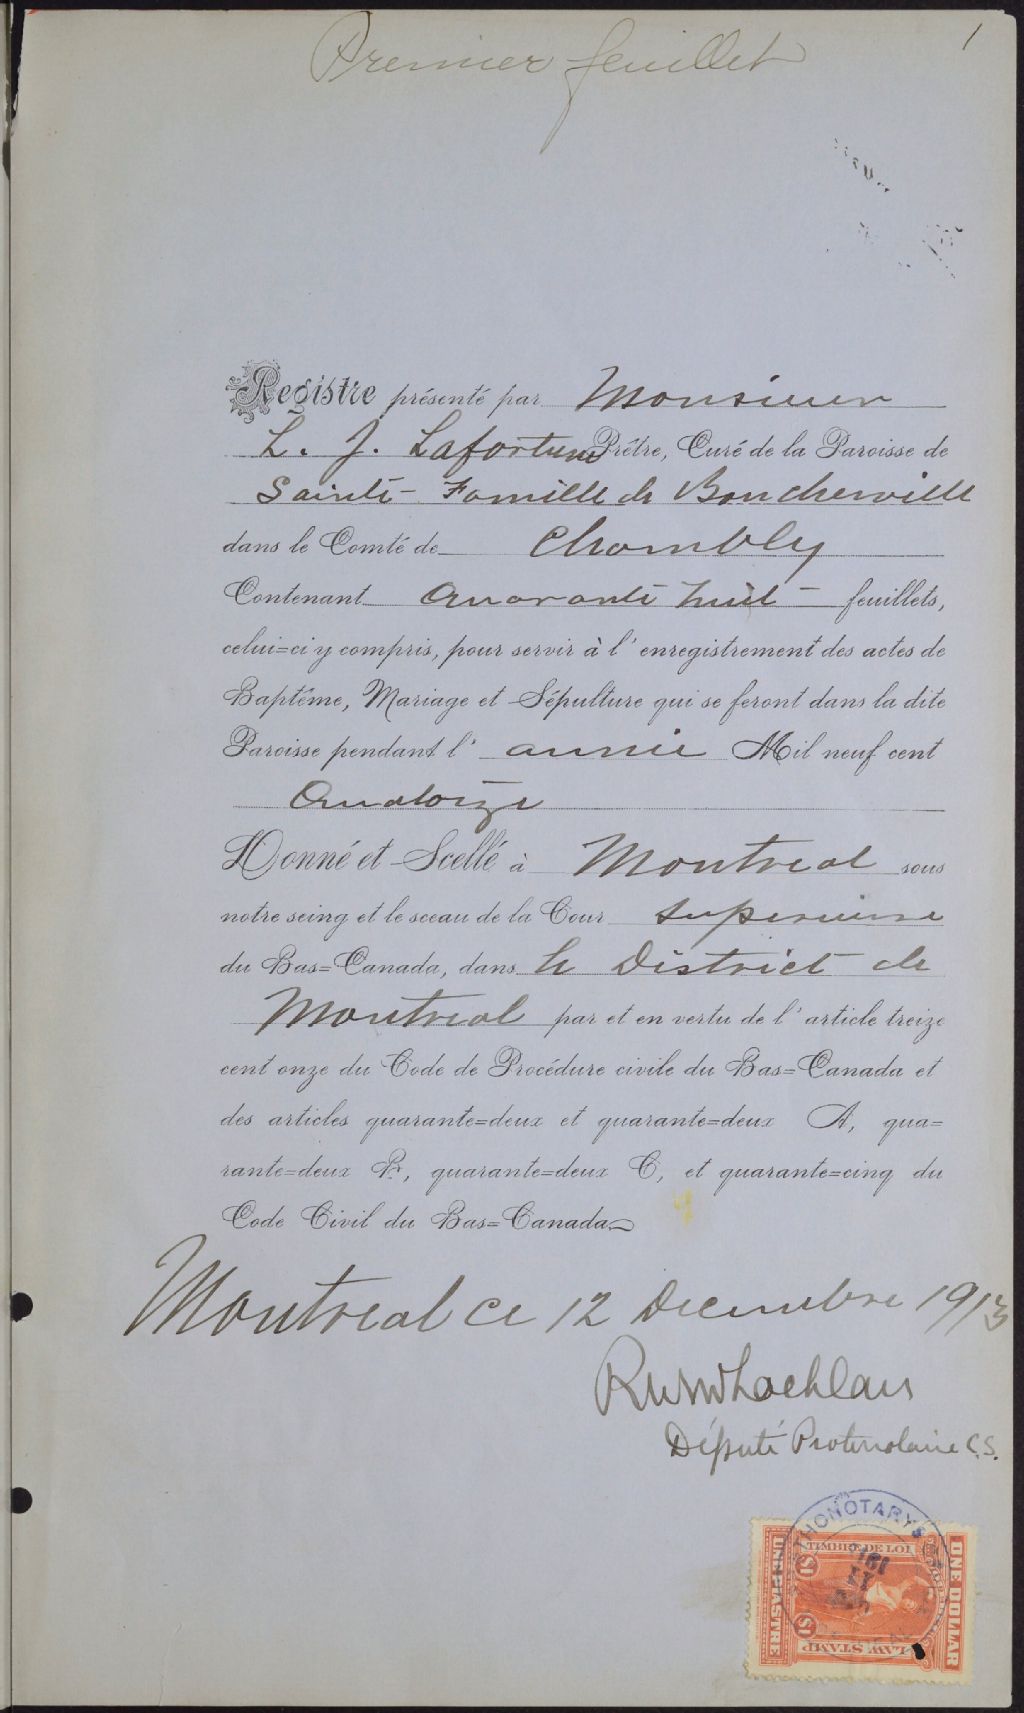 Premier feuillet
1
Registre présenté par Monsieur
L. J. Lafortune Prêtre, Curé de la Paroisse de
Sainte-Famille de Boucherville
dans le Comté de Chambly
Contenant Quarante huit feuillets,
celui=ci y compris, pour servir à l'enregistrement des actes de
Baptême, Mariage et Sépulture qui se feront dans la dite
Paroisse pendant l'année Mil neuf cent
Quatorze
Donné et Scellé à Montreal sous
notre seing et le sceau de la Cour Superieure
du Bas=Canada, dans le District de
Montreal par et en vertu de l'article treize
cent onze du Code de Procédure civile du Bas=Canada et
des articles quarante=deux et quarante=deux A, qua=
rante=deux B, quarante=deux C, et quarante=cinq du
Code Civil du Bas=Canada
Montreal ce 12 Decembre 1913
Député Protonotaire C.S.
THONOTARY'S
TIMBRE DE LOI
$1 $1
LAW STAMP
UNE PIASTRE
ONE DOLLAR